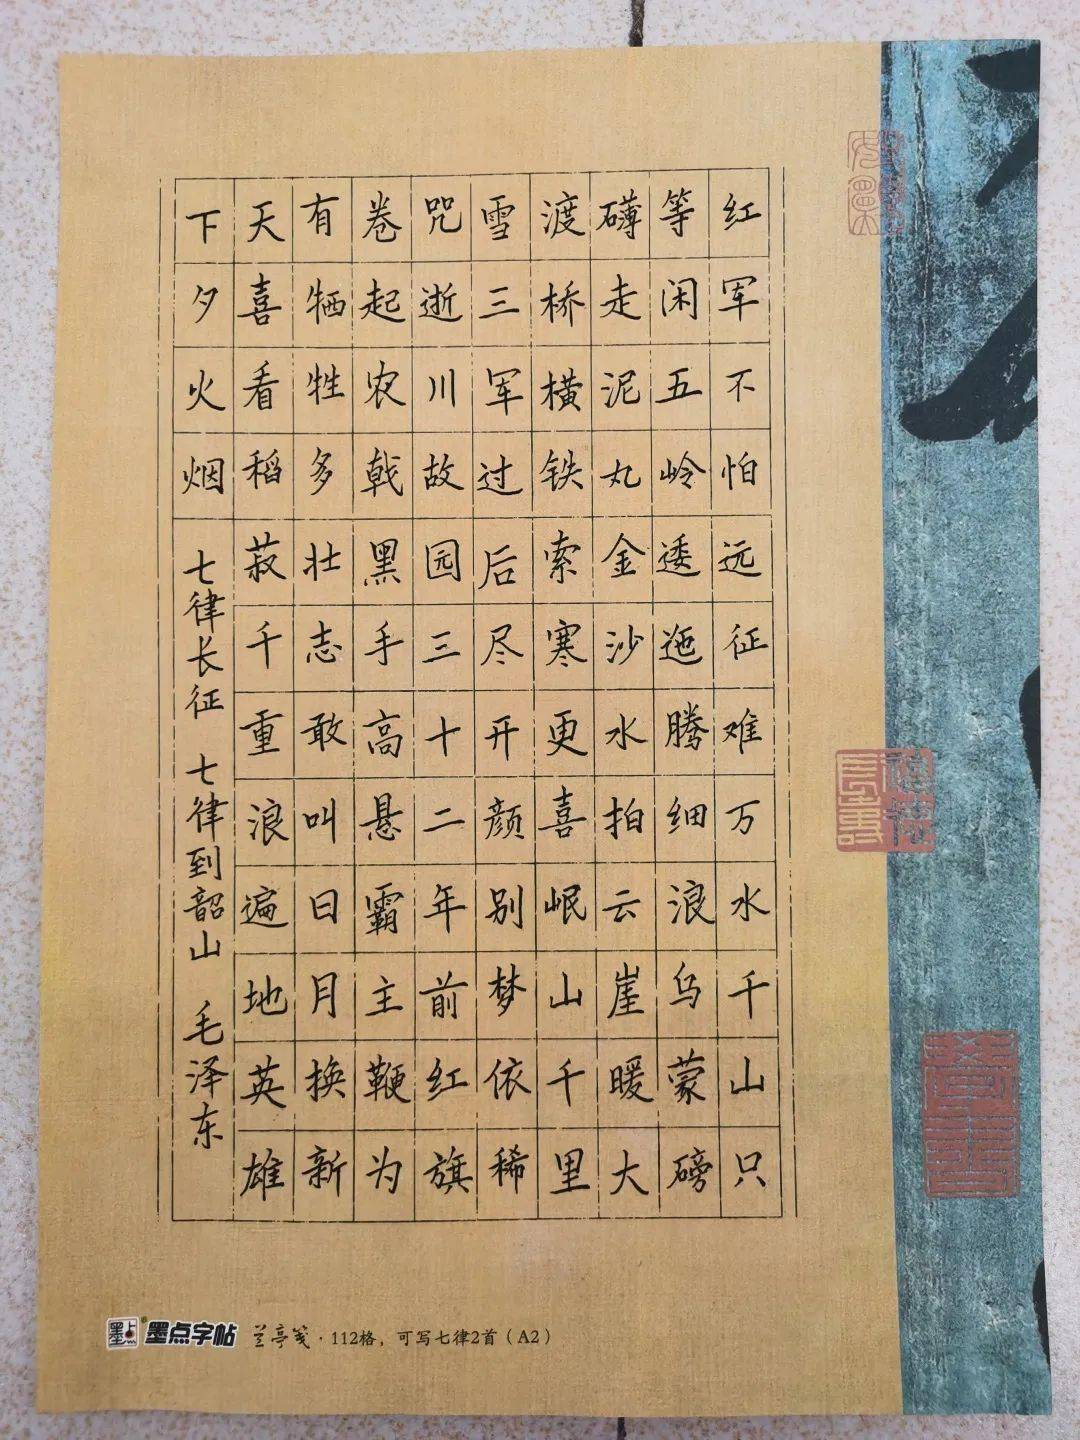 红军不怕远征难万水千山只
等闲五岭逶迤腾细浪乌蒙磅
礴走泥丸金沙水拍云崖暖大
渡桥横铁索寒更喜岷山千里
雪三军过后尽开颜别梦依稀
咒逝川故园三十二年前红旗
卷起农戟黑手高悬霸主鞭为
有牺牲多壮志敢叫日月换新
天喜看稻菽千重浪遍地英雄
下夕火烟
七律长征 七律到韶山 毛泽东
墨点 墨点字帖 兰亭笺·112格，可写七律2首（A2）